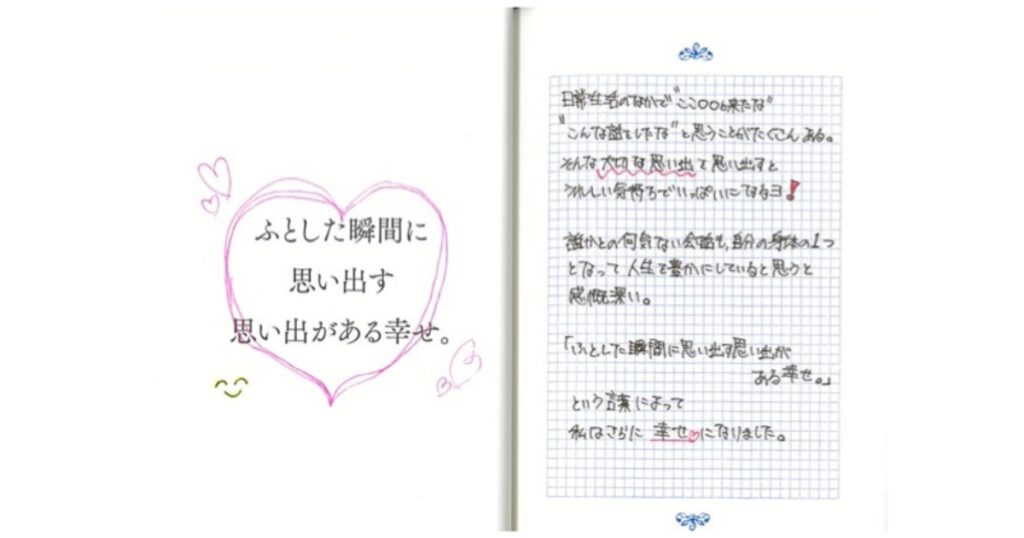 ふとした瞬間に
思い出す
思い出がある幸せ。
日常生活のなかで"ここ〇〇と来たな"
"こんな話をしたな"と思うことがたくさんある。
そんな大切な思い出を思い出すと
うれしい気持ちでいっぱいになるヨ!
誰かとの何気ない会話も、自分の身体の1つ
となって人生を豊かにしていると思うと
感慨深い。
「ふとした瞬間に思い出す思い出が
ある幸せ。」
という言葉によって
私はさらに幸せ♡になりました。